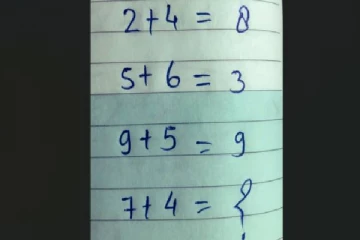 2+4 = 8
5+6 = 3
9+5 = 9
7+4 = ?